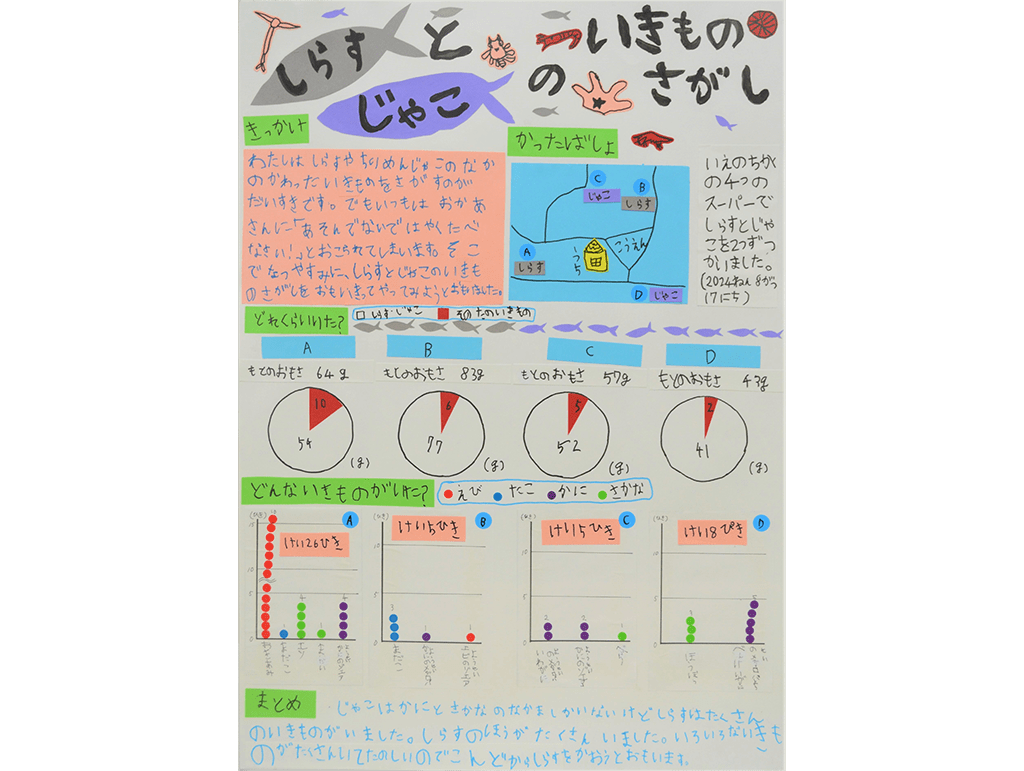 しらす
と
じゃこ
の
いきもの
さがし
きっかけ
わたしは しらすや ちりめんじゃこのなか
のかわったいきものをさがすのが
だいすきです。でもいつもは おかあ
さんに「あそんでないではやくたべ
なさい!」とおこられてしまいます。そこ
でなつやすみに、しらすとじゃこのいきも
のさがしをおもいきってやってみようとおもいました。
かったばしょ
C
じゃこ
B
しらす
こうえん
うち
A
しらす
D じゃこ
いえのちか
の4つの
スーパーで
しらすとじゃ
こを2つずつ
かいました。
(2024ねん8がつ
17にち)
どれくらいいた?
しらす・じゃこ
そのたのいきもの
A
B
C
D
もとのおもさ 64g
もとのおもさ 83g
もとのおもさ 57g
もとのおもさ 43g
10
54
(g)
6
77
(g)
5
52
(g)
2
41
(g)
どんないきものがいた?
えび
たこ
かに
さかな
A
けい26ひき
B
けい5ひき
C
けい5ひき
D
けい8ぴき
まとめ
じゃこはかにとさかなのなかましかいないけどしらすはたくさん
のいきものがいました。しらすのほうがたくさんいました。いろいろないきも
のがたくさんいてたのしいのでこんどからしらすをかおうとおもいます。